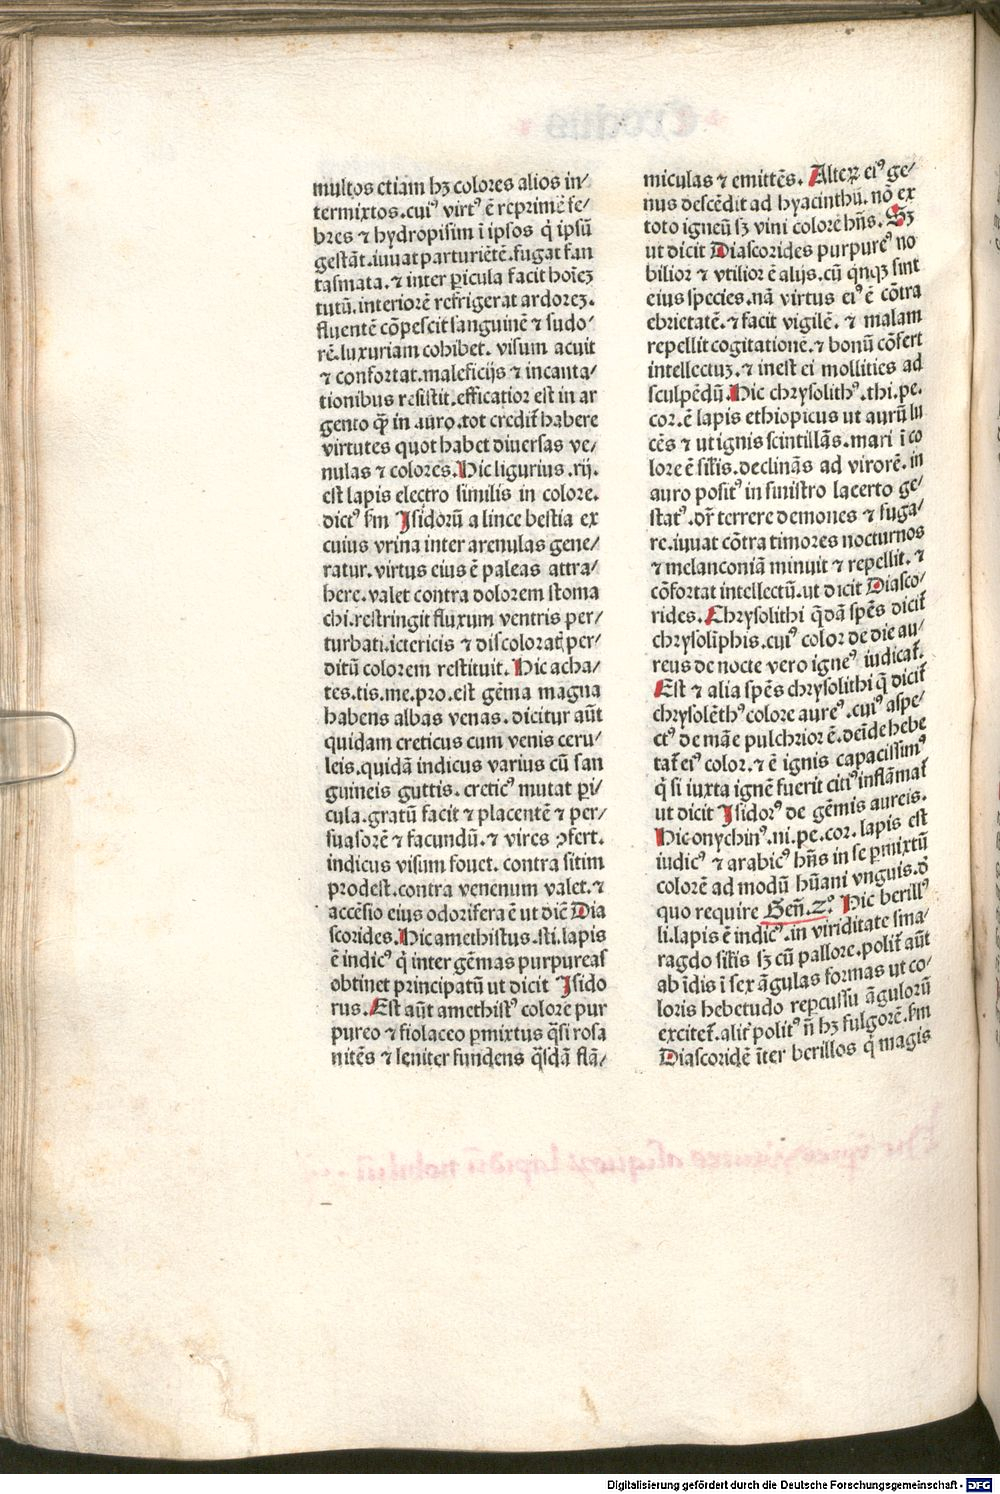 multos etiam hꝫ colores alios in⸗
termixtos.cuiꝰ virtꝰ ē reprimē fe⸗
bres ⁊ hydropisim ī ipsos q̇ ipsū
gestāt.iuuat parturiētē.fugat fan
tasmata.⁊ inter ꝑicula facit hoīeꝫ
tutū.interiorē refrigerat ardoreꝫ.
fluentē cōpescit sanguinē ⁊ sudo⸗
rē.luxuriam cohibet. visum acuit
⁊ confortat.maleficijs ⁊ incanta⸗
tionibus resistit.efficatior est in ar
gento q̄ꝫ in auro.tot credit̄ habere
virtutes quot habet diuersas ve⸗
nulas ⁊ colores.Hic ligurius .rij.
est lapis electro similis in colore.
dictꝰ ẜm Isidorū a lince bestia ex
cuius vrina inter arenulas gene⸗
ratur.virtus eius ē paleas attra⸗
here.valet contra dolorem stoma
chi.restringit fluxum ventris per⸗
turbati.ictericis ⁊ discoloratꝭ per⸗
ditū colorem restituit. Hic acha⸗
tes.tis.me.pro.est gēma magna
habens albas venas.dicitur aūt
quidam creticus cum venis ceru⸗
leis.quidā indicus varius cū san
guineis guttis. creticꝰ mutat ꝑi⸗
cula.gratū facit ⁊ placentē ⁊ per⸗
suasorē ⁊ facundū.⁊ vires ꝯfert.
indicus visum fouet. contra sitim
prodest.contra venenum valet.⁊
accēsio eius odorifera ē ut dic̄ Dia
scorides.Hic amethistus.sti.lapis
ē indicꝰ q̇ inter gēmas purpureas
obtinet principatū ut dicit Isido
rus.Est aūt amethistꝰ colore pur
pureo ⁊ fiolaceo ꝑmixtus q̄si rosa
nitēs ⁊ leniter fundens q̄sdā flā⸗
miculas ⁊ emittēs. Alteꝝ eiꝰ ge⸗
nus descēdit ad hyacinthū. nō ex
toto igneū sꝫ vini colorē hn̄s. Sꝫ
ut dicit Diascorides purpureꝰ no
bilior ⁊ vtilior ē alijs.cū qͥnqꝫ sint
eius species.nā virtus eiꝰ ē cōtra
ebrietatē.⁊ facit vigilē. ⁊ malam
repellit cogitationē.⁊ bonū cōfert
intellectuꝫ.⁊ inest ei mollities ad
sculpēdū.Hic chrysolithꝰ.thi.pe.
cor.ē lapis ethiopicus ut aurū lu
cēs ⁊ ut ignis scintillās.mari ī co
lore ē sil̄is.declinās ad virorē. in
auro positꝰ in sinistro lacerto ge⸗
statꝰ.dr̄ terrere demones ⁊ fuga⸗
re.iuuat cōtra timores nocturnos
⁊ melanconiā minuit ⁊ repellit. ⁊
cōfortat intellectū.ut dicit Diasco⸗
rides. Chrysolithi q̄dā spēs dicit̄
chrysoliphis.cuiꝰ color de die au⸗
reus de nocte vero igneꝰ iudicat̄.
Est ⁊ alia spēs chrysolithi q̄ dicit̄
chrysolēthꝰ colore aureꝰ.cuiꝰ aspe⸗
ctꝰ de māe pulchrior ē.deīde hebe
tat̄ eiꝰ color.⁊ ē ignis capacissimꝰ
q̇ si iuxta ignē fuerit citiꝰ inflāmat̄
ut dicit Isidorꝰ de gēmis aureis.
Hic onychinꝰ.ni.pe.cor.lapis est
iudicꝰ ⁊ arabicꝰ hn̄s in se ꝑmixtū
colorē ad modū hūani vnguis.d̄
quo require Gen̄.2ͦ. Hic berillꝰ
li.lapis ē indicꝰ.in viriditate sma⸗
ragdo sil̄is sꝫ cū pallore.polit̄ aūt
ab īdis ī sex āgulas formas ut co⸗
loris hebetudo reꝑcussu āgulorū
excitet̄.alit̄ politꝰ n̄ hꝫ fulgorē.ẜm
Diascoridē īter berillos q̇ magis
Digitalisierung gefördert durch die Deutsche Forschungsgemeinschaft - DFG